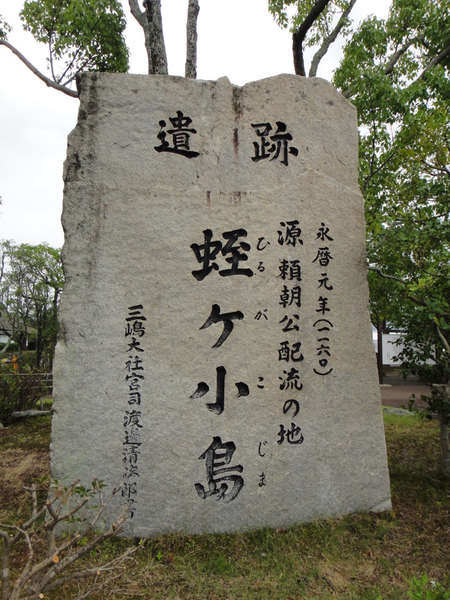 遺跡
永暦元年(一一六〇)
源頼朝公配流の地
ひるがこじま
蛭ヶ小島
三嶋大社宮司